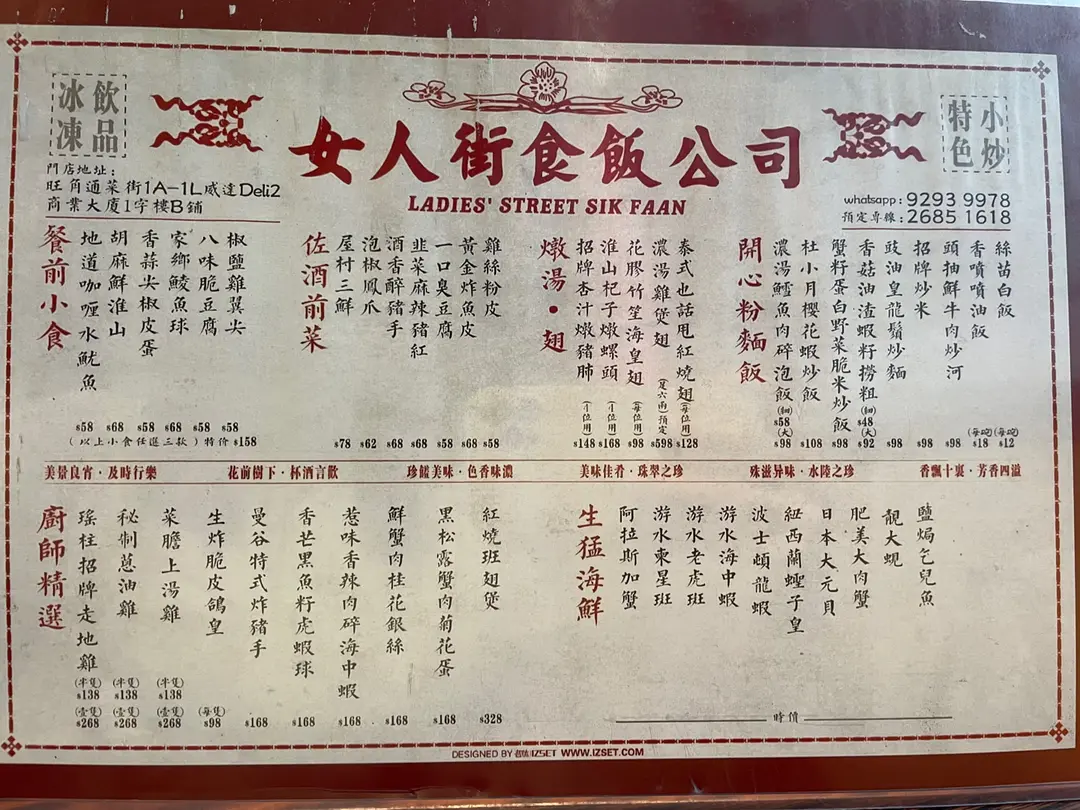 飲品
冰凍
女人街食飯公司
LADIES' STREET SIK FAAN
小炒
特色
門店地址：
旺角通菜街1A-1L威達Deli2
商業大廈1字樓B鋪
whatsapp：9293 9978
預定專線：2685 1618
餐前小食
地道咖喱水魷魚 $58
胡麻鮮淮山 $68
香蒜尖椒皮蛋 $58
家鄉鯪魚球 $68
八味脆豆腐 $58
椒鹽雞翼尖 $58
（以上小食任選三款）特价 $158
佐酒前菜
屋村三鮮 $78
泡椒鳳爪 $62
酒香醉豬手 $68
韭菜麻辣豬紅 $68
一口臭豆腐 $58
黃金炸魚皮 $68
雞絲粉皮 $58
燉湯·翅
招牌杏汁燉豬肺 (1位用) $148
淮山杞子燉螺頭 (1位用) $168
花膠竹笙海皇翅 (每位用) $98
濃湯雞煲翅 (足六両)預定 $598
泰式也話甩紅燒翅 (每位用) $128
開心粉麵飯
濃湯鱸魚肉碎泡飯 (細) $58 (大) $98
杜小月櫻花蝦炒飯 $108
蟹籽蛋白野菜脆米炒飯 $98
香菇油渣蝦籽撈粗 (細) $48 (大) $92
豉油皇龍鬚炒麵 $98
招牌炒米 $98
頭抽鮮牛肉炒河 $98
香噴噴油飯 (每碗) $18
絲苗白飯 (每碗) $12
美景良宵·及時行樂
花前樹下·杯酒言歡
珍饈美味·色香味濃
美味佳肴·珠翠之珍
殊滋异味·水陸之珍
香飄十裏·芳香四溢
廚師精選
瑤柱招牌走地雞 (半隻) $138 (壹隻) $268
秘制蔥油雞 (半隻) $138 (壹隻) $268
菜膽上湯雞 (半隻) $138 (壹隻) $268
生炸脆皮鴿皇 (每隻) $98
曼谷特式炸豬手 $168
香芒黑魚籽虎蝦球 $168
惹味香辣肉碎海中蝦 $168
鮮蟹肉桂花銀絲 $168
黑松露蟹肉菊花蛋 $168
紅燒班翅煲 $328
生猛海鮮
阿拉斯加蟹
游水東星班
游水老虎班
游水海中蝦
波士頓龍蝦
紐西蘭蟶子皇
日本大元貝
肥美大肉蟹
靚大蜆
鹽焗乞兒魚
時價
DESIGNED BY IZSET WWW.IZSET.COM